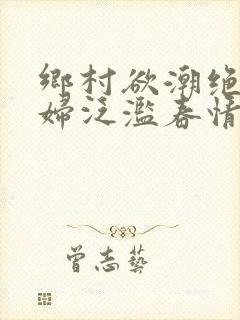 鄉村欲潮绝
婦泛濫春情
曾志藝